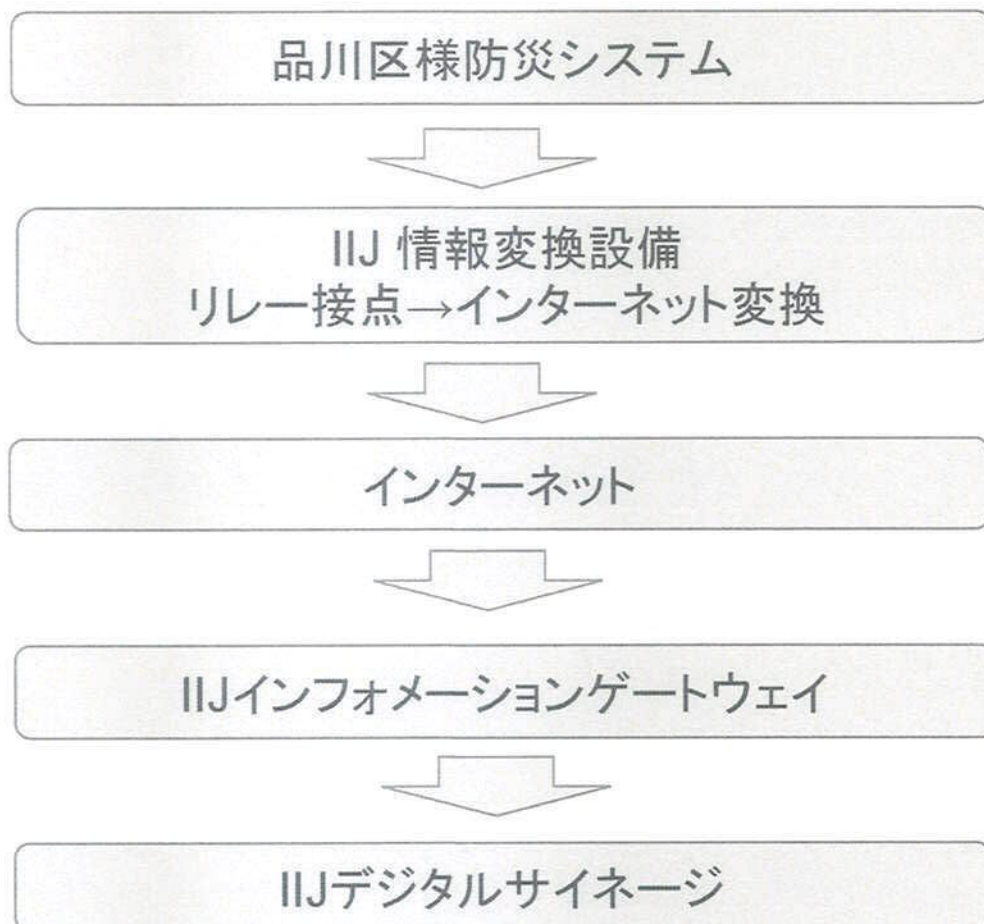 品川区様防災システム
IIJ 情報変換設備
リレー接点→インターネット変換
インターネット
IIJインフォメーションゲートウェイ
IIJデジタルサイネージ